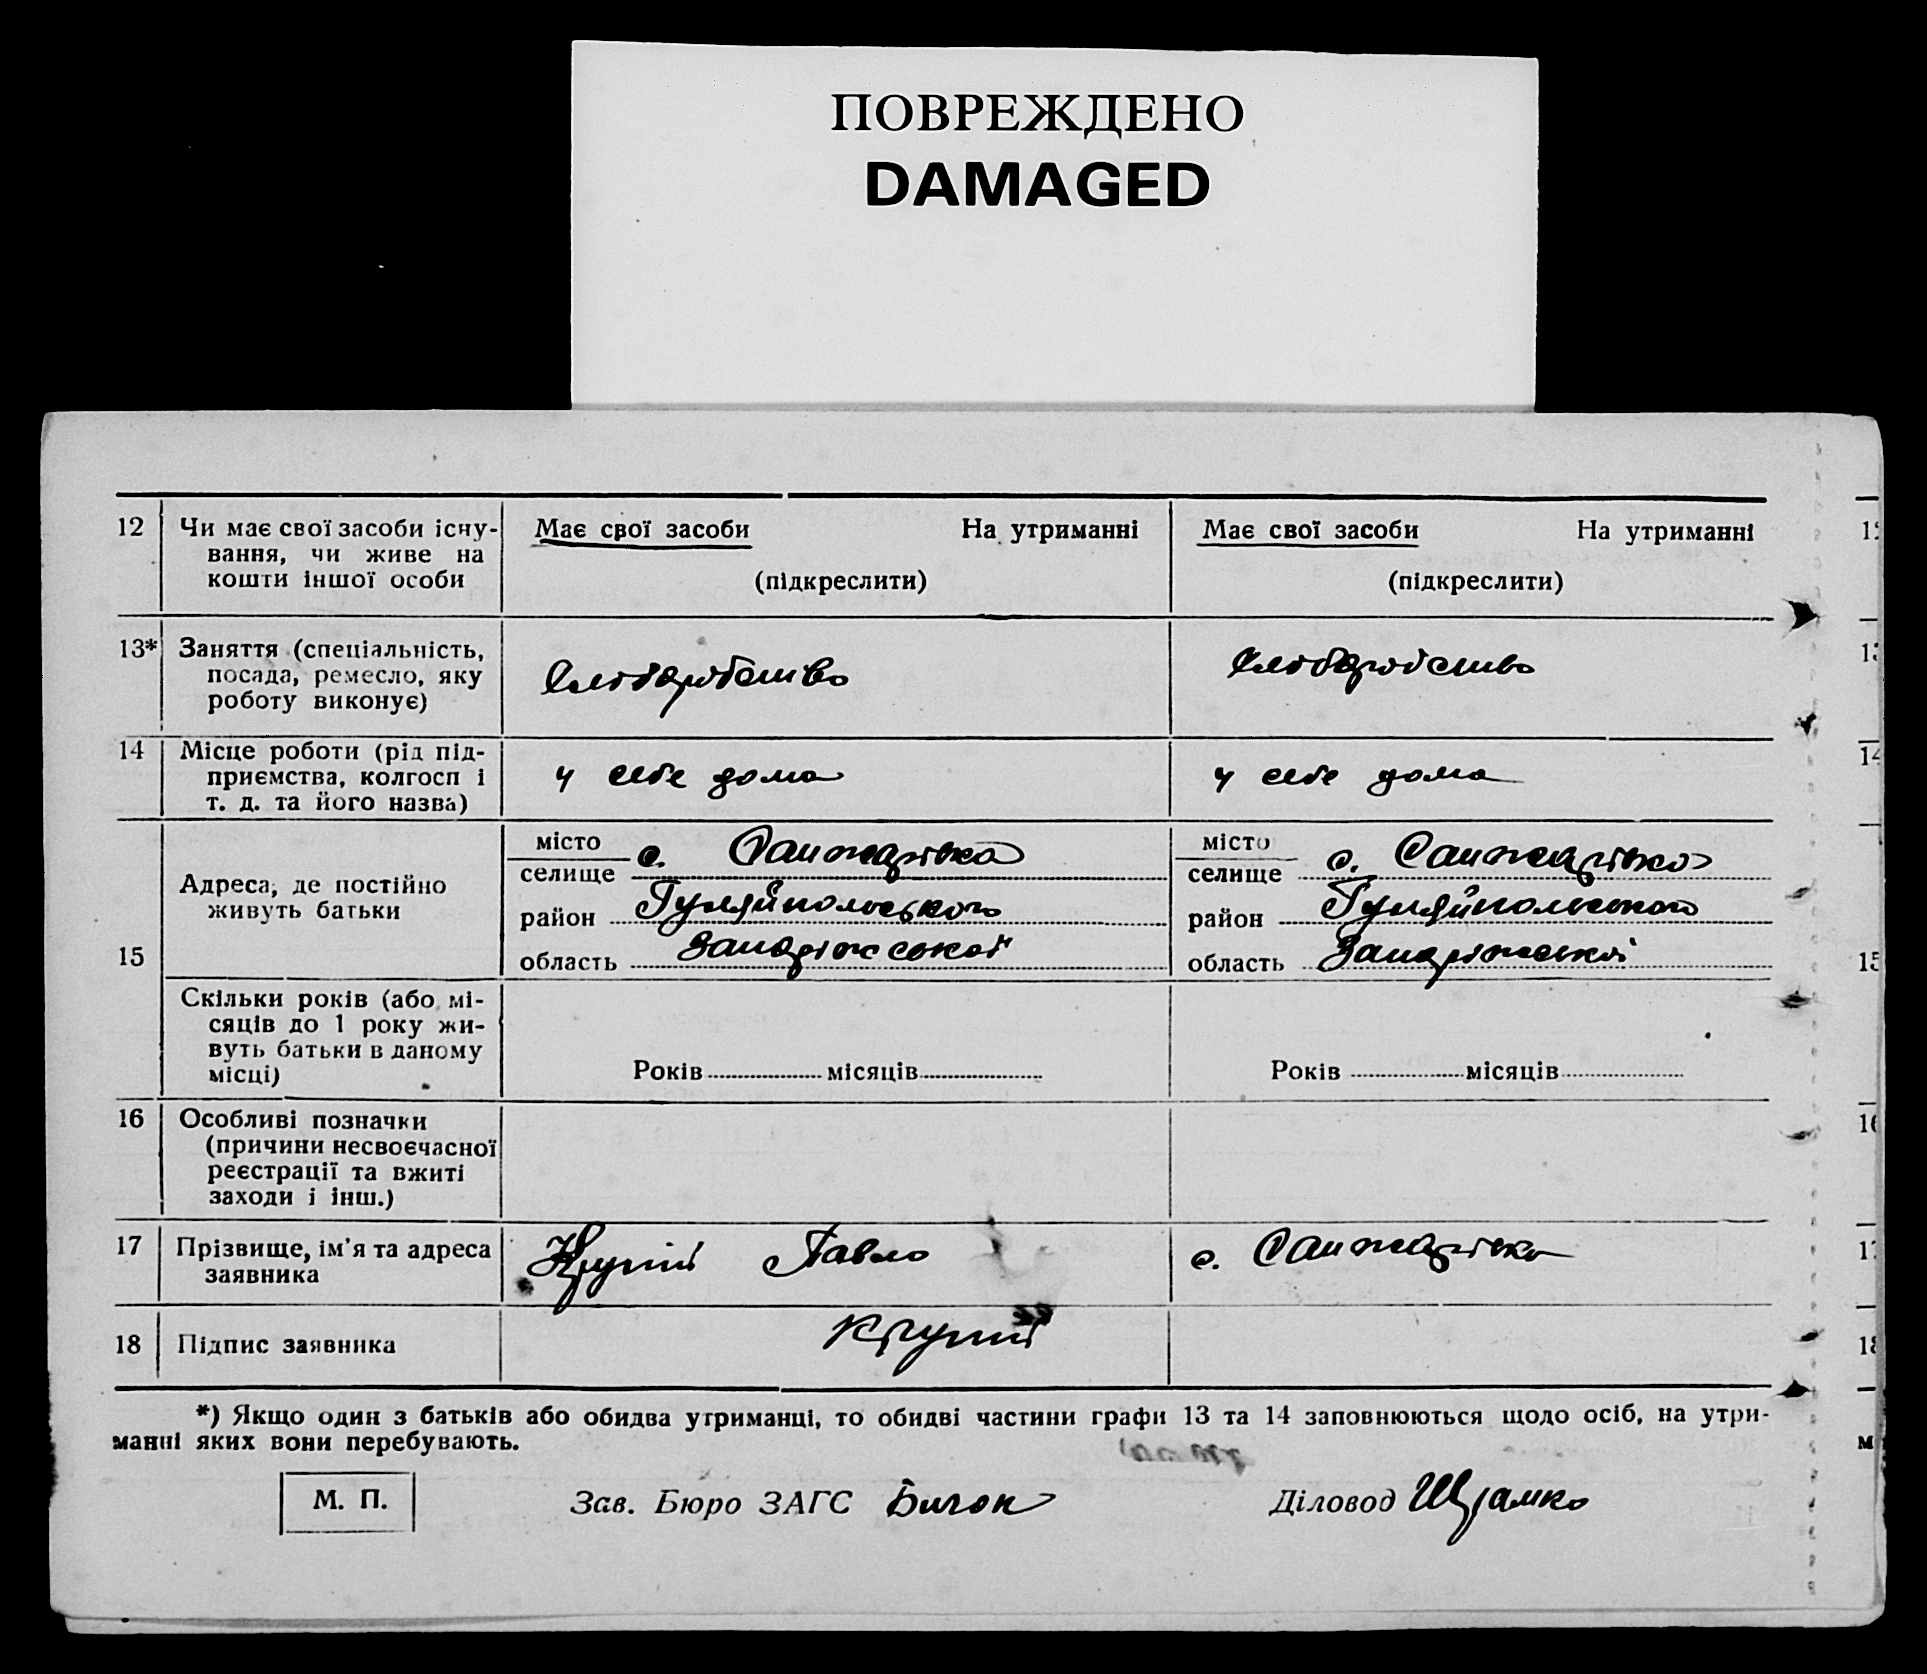 ПОВРЕЖДЕНО
DAMAGED
12 Чи має свої засоби існу-
вання, чи живе на
кошти іншої особи
Має свої засоби На утриманні
(підкреслити)
Має свої засоби На утриманні
(підкреслити)
13* Заняття (спеціальність,
посада, ремесло, яку
роботу виконує)
Хліборобство
Хліборобство
14 Місце роботи (рід під-
приємства, колгосп і
т. д. та його назва)
у себе дома
у себе дома
15
Адреса, де постійно
живуть батьки
місто
селище с. Санжарівка
район Гуляйпольського
область Запоріжської
місто
селище с. Санжарівка
район Гуляйпольського
область Запоріжської
Скільки років (або мі-
сяців до 1 року жи-
вуть батьки в даному
місці)
Років місяців
Років місяців
16 Особливі позначки
(причини несвоєчасної
реєстрації та вжиті
заходи і інш.)
17 Прізвище, ім'я та адреса
заявника
Крупій Павло
с. Санжарівка
18 Підпис заявника
Крупій
*) Якщо один з батьків або обидва утриманці, то обидві частини графи 13 та 14 заповнюються щодо осіб, на утри-
манні яких вони перебувають.
М. П.
Зав. Бюро ЗАГС
Діловод Шрамко
14
15
16
17
18
м